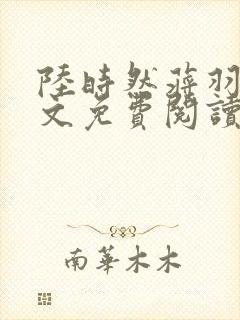 陸時然蔣羽
文免費閱讀
南華木木